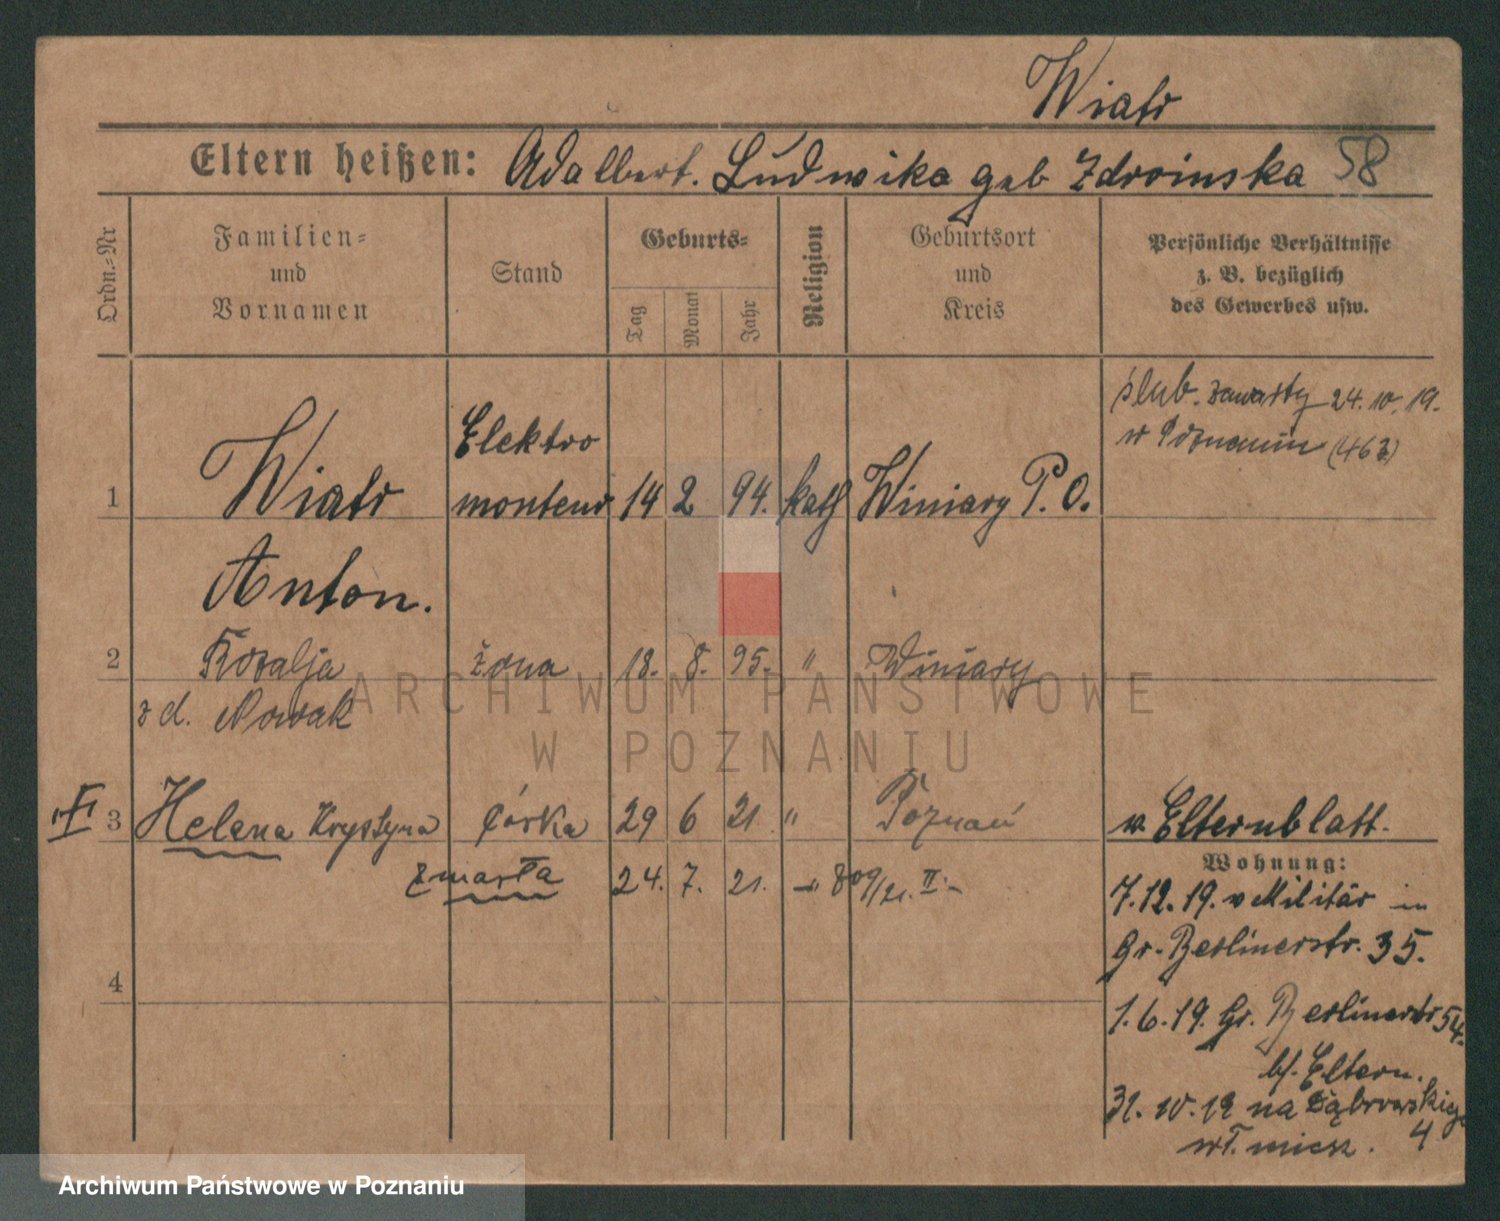 Wiatr
Eltern heißen: Adalbert. Ludwika geb Zdroinska 58
Ordn.-Nr
Familien-
und
Vornamen
Stand
Geburts-
Tag
Monat
Jahr
Religion
Geburtsort
und
Kreis
Persönliche Verhältnisse
z. B. bezüglich
des Gewerbes usw.
ślub. zawarty 24.10.19.
w Poznaniu
Elektro
1 Wiatr monteur 14 2 94. kath Winiary P. O.
Anton.
2 Rozalja żona 18. 8. 95. " Winiary
z d. Nowak
3 Helena Krystyna córka 29 6 21. " Poznań
v. Elternblatt.
zmarła 24. 7. 21. 809/21. II.
4
Wohnung:
7.12.19. v Militär in
Gr. Berlinerstr. 35.
1.6.19. Gr. Berlinerstr 54.
b/. Eltern.
31.10.19 na Dąbrowskiego
4
wł. miesz.
ARCHIWUM PAŃSTWOWE
W POZNANIU
Archiwum Państwowe w Poznaniu